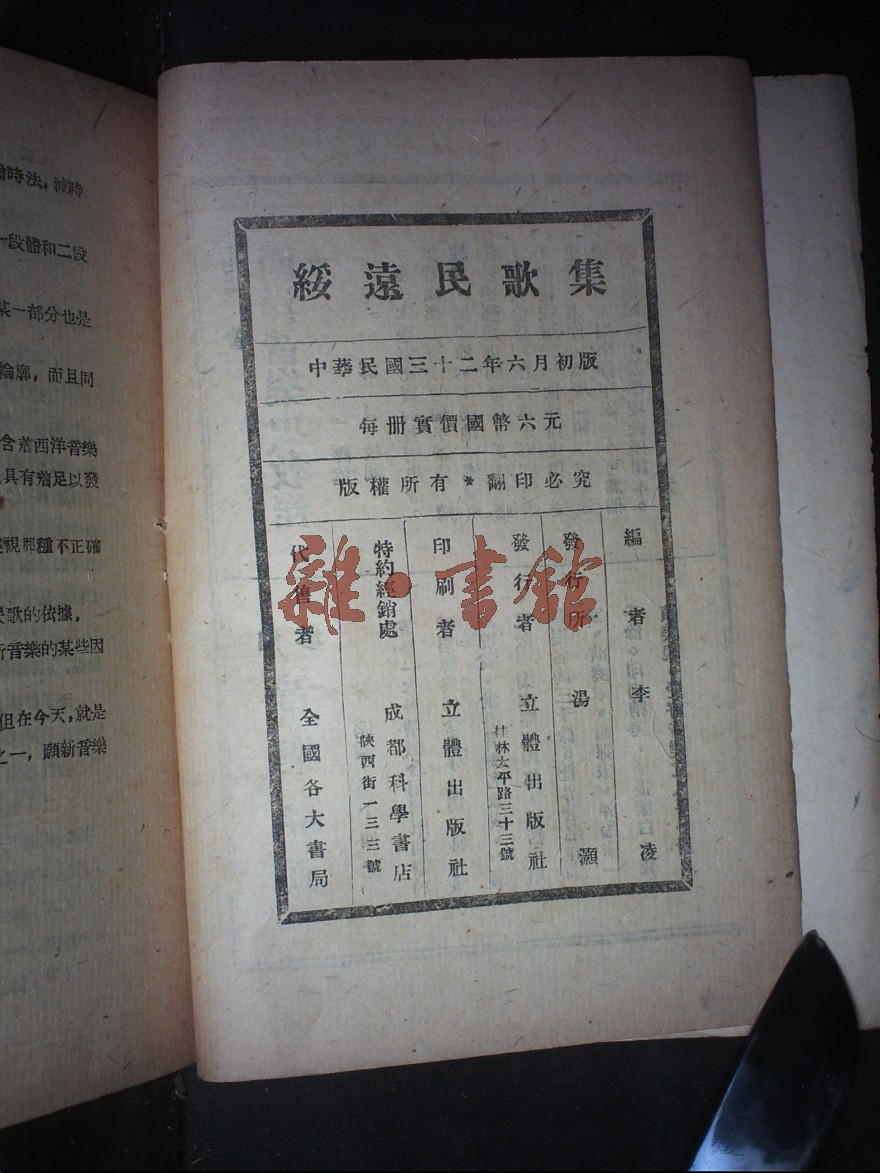 時法，濟時
一段體和二段
某一部分也是
輪廓，而且同
含着西洋音樂
具有着足以發
視那種不正確
民歌的依據，
新音樂的某些因
但在今天，就是
之一，願新音樂
綏遠民歌集
中華民國三十二年六月初版
每册實價國幣六元
版權所有*翻印必究
編者 李凌
發行所 湯灝
發行者 立體出版社
桂林太平路三十三號
印刷者 立體出版社
特約經銷處 成都科學書店
陝西街一三三號
代售者 全國各大書局
雜·書館